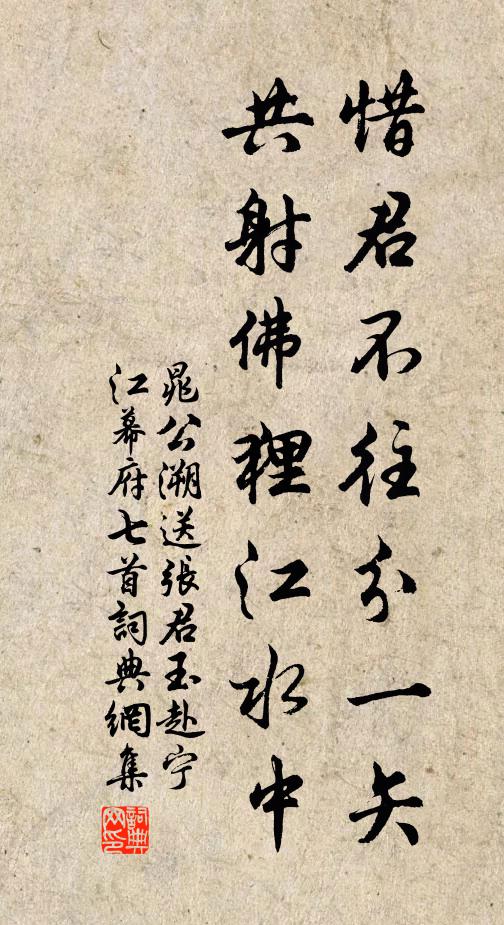 惜君不往分一矢
共射佛狸江水中
晁公溯送張君玉赴宁
江幕府七首詞典網集
詞典网印